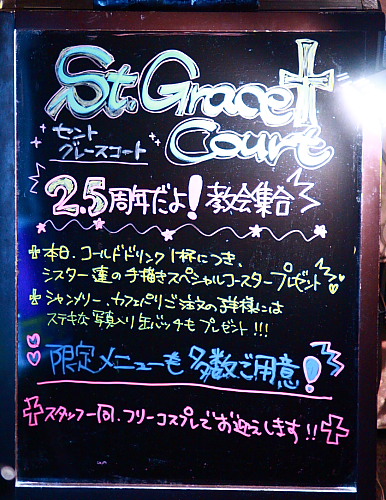 St. Grace
Court
セント
グレースコート
2.5周年だよ!教会集合
本日、コールドドリンク1杯につき、
シスター達の手描きスペシャルコースタープレゼント
シャンメリー、カフェパリご注文のお客様には
ステキな写真入り缶バッチもプレゼント!!!
限定メニューも多数ご用意!
スタッフ一同、フリーコスプレでお迎えします!!